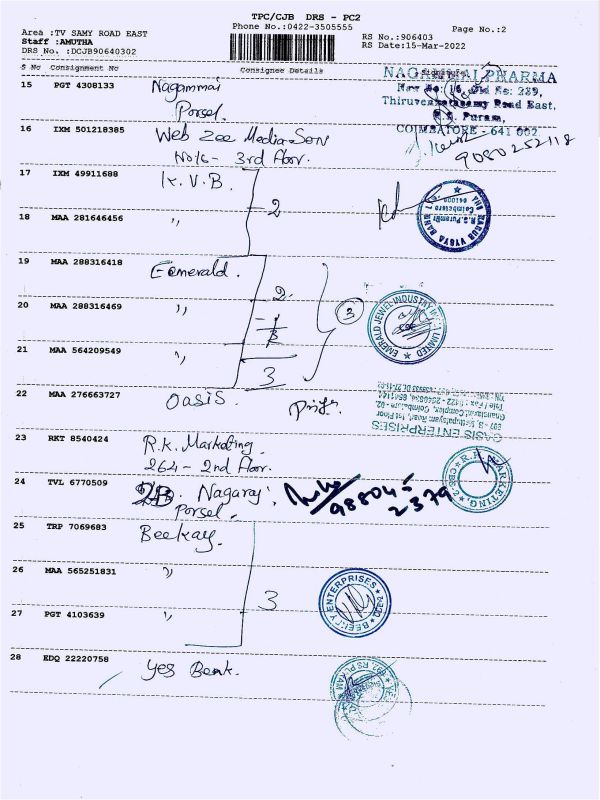 TPC/CJB DRS - PC2
Phone No.:0422-3505555
Page No.:2
Area :TV SAMY ROAD EAST
Staff :AMUTHA
DRS No. :DCJB90640302
RS No.:906403
RS Date:15-Mar-2022
S No Consignment No Consignee Details Signature
15 PGT 4308133 Nagammai
Porsel.
NAGAMMAI PHARMA
New No: 16, Old No: 289,
Thiruvenkatasamy Road East,
R.S. Puram,
COIMBATORE - 641 002
9080252118
16 IXM 501218385 Web Zee Media Son
No16- 3rd floor.
17 IXM 49911688 K.V.B.
2
18 MAA 281646456 ,,
THE KARUR VYSYA BANK LTD
R.S. Puram
Coimbatore
641002
19 MAA 288316418 Emerald.
2
20 MAA 288316469 ,,
3
21 MAA 564209549 ,,
3
EMERALD JEWEL INDUSTRY INDIA LIMITED
22 MAA 276663727 Oasis.
OASIS ENTERPRISES
Mettupalayam Road, 1st Floor
Complex, Coimbatore - 02.
23 RKT 8540424 R.K. Marketing.
264- 2nd floor.
R.K. MARKETING
CBE-2
24 TVL 6770509 Nagaraj.
Porsel.
98804 5
2379
25 TRP 7069683 Beekay.
26 MAA 565251831 ,,
3
27 PGT 4103639 ,,
BEEKAY ENTERPRISES
28 EDQ 22220758 Yes Bank.